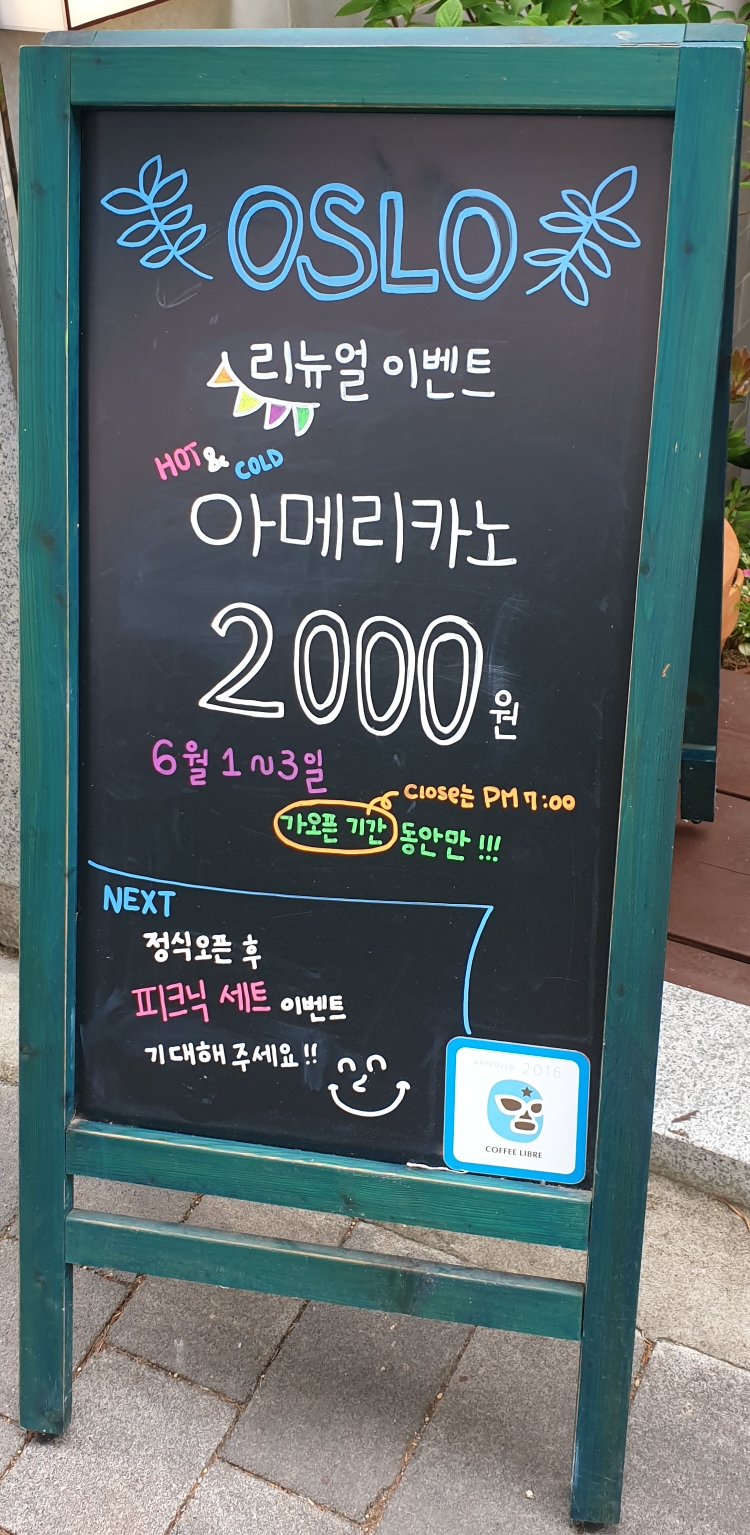 OSLO
리뉴얼 이벤트
HOT & COLD
아메리카노
2000원
6월 1~3일
Close는 PM 7:00
가오픈 기간 동안만 !!!
NEXT
정식오픈 후
피크닉 세트 이벤트
기대해 주세요!!
APPROVED 2016
COFFEE LIBRE